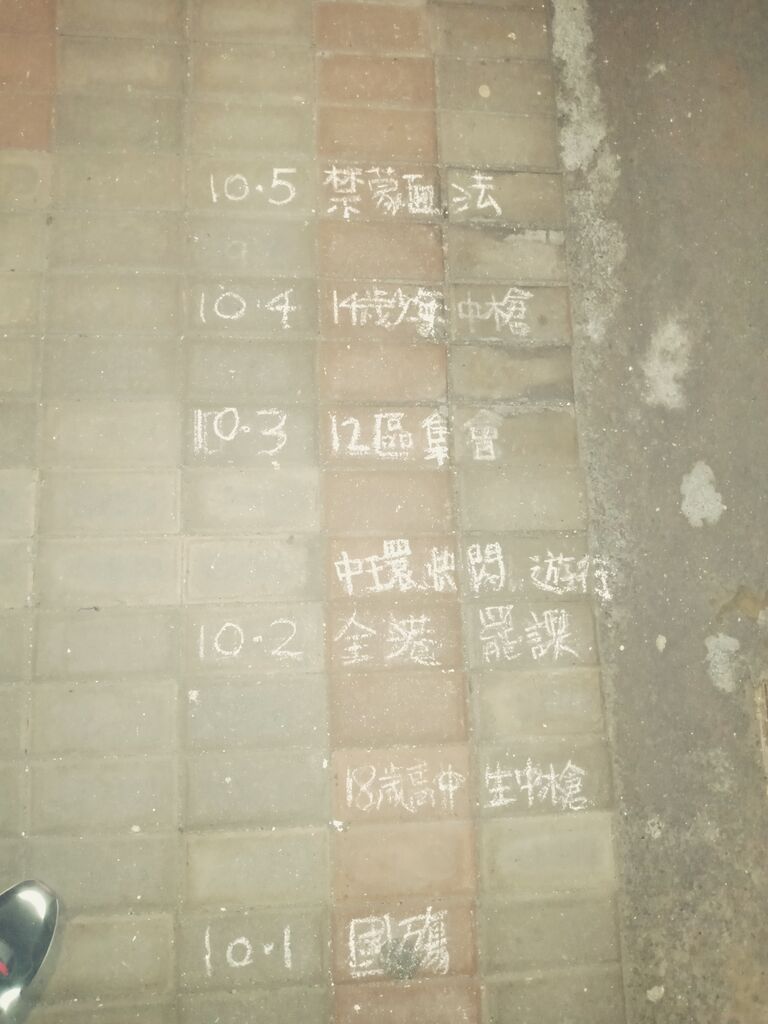 10.5 禁蒙面法
10.4 14歲少年中槍
10.3 12區集會
中環快閃遊行
10.2 全港罷課
18歲高中生中槍
10.1 國殤